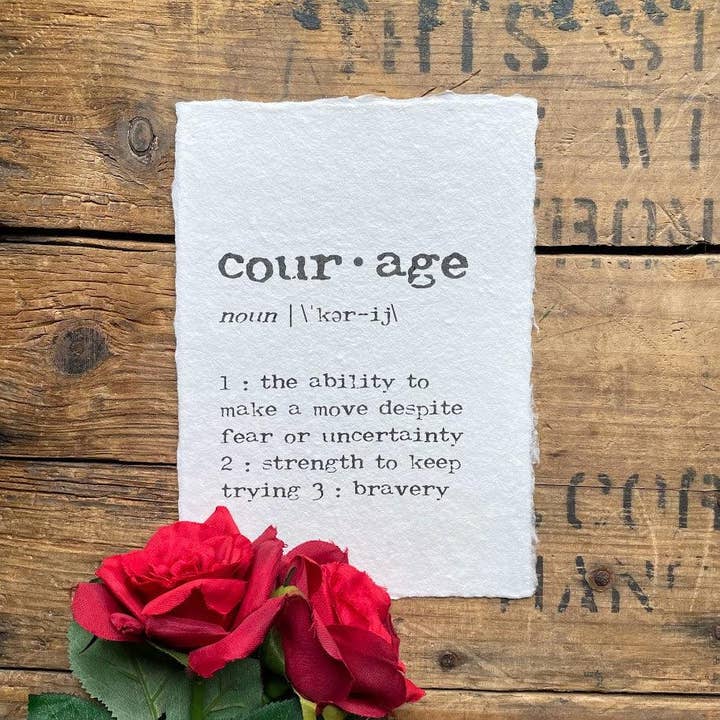 THIS SI
WI
cour·age
noun | \ˈkər-ij\
1 : the ability to
make a move despite
fear or uncertainty
2 : strength to keep
trying 3 : bravery